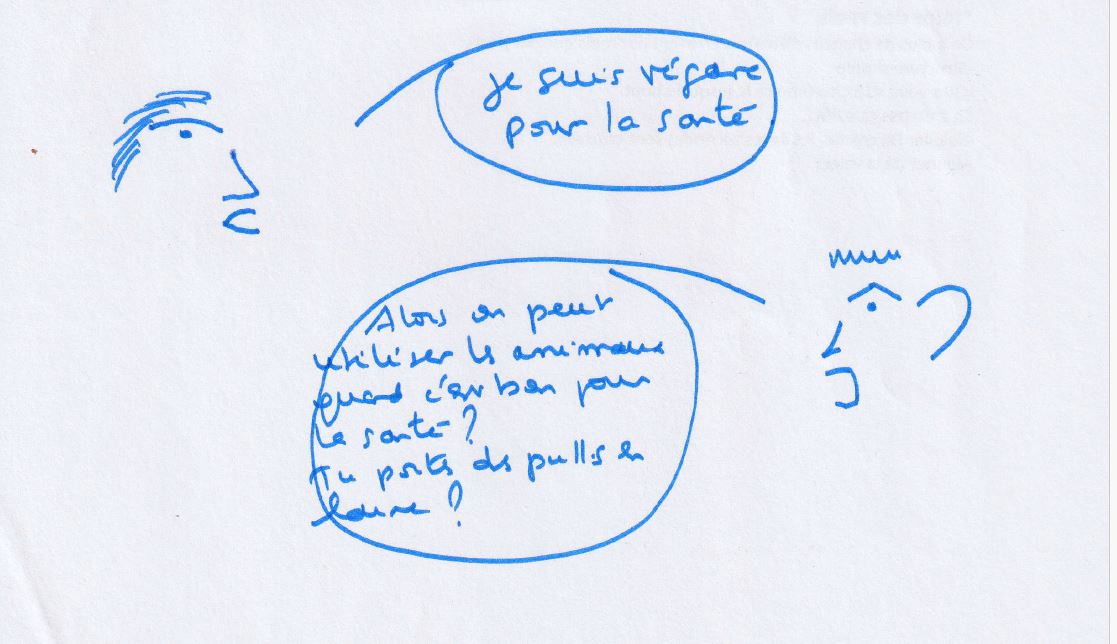 je suis végane
pour la santé
Alors on peut
utiliser les animaux
quand c'est bon pour
la santé ?
Tu portes des pulls en
laine ?